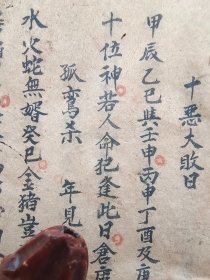 十惡大敗日
甲辰乙巳與壬申丙申丁酉及庚
十位神若人命犯逢此日倉庫
孤鸞杀 年見
水火蛇無婿癸巳金猪豈